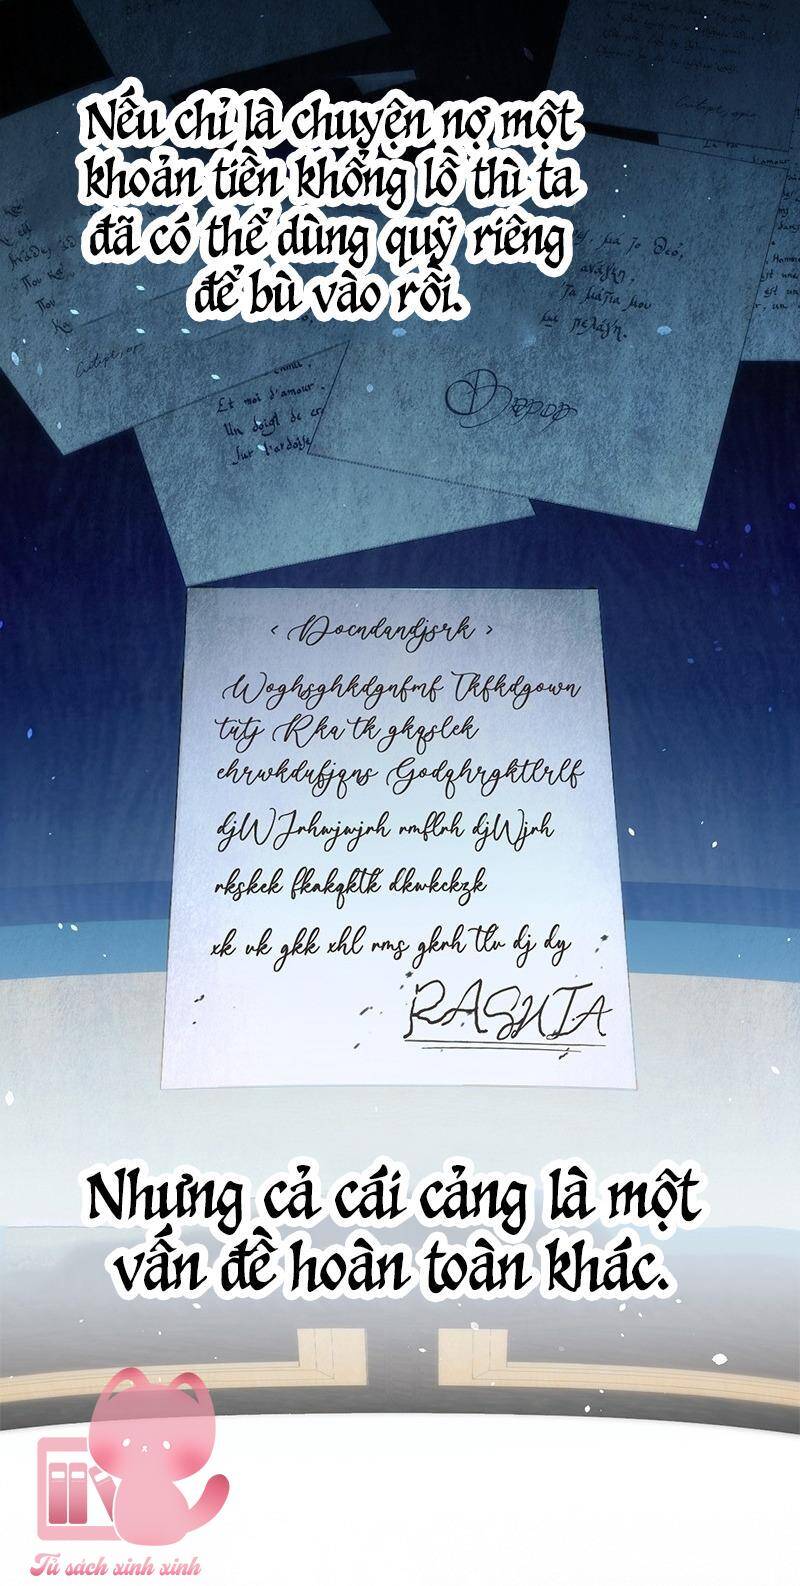 Nếu chỉ là chuyện nợ một
khoản tiền khổng lồ thì ta
đã có thể dùng quỹ riêng
để bù vào rồi.
Et moi d'amour
Un doigt de
sur l'ardoise
< Docndandjsrk >
Woghsghkdgnfmf Tkfkdgown
tutj Rka tk gkqslek
chrwkdufjqns Godqhrgktlrlf
djWJrhwjwjrh rmflrh djWjrh
rkskek fkakqktk dkwkckzk
xk vk gkk xhl rms gkrh tlv dj dy
RASHTA
Nhưng cả cái cảng là một
vấn đề hoàn toàn khác.
Tủ sách xinh xinh